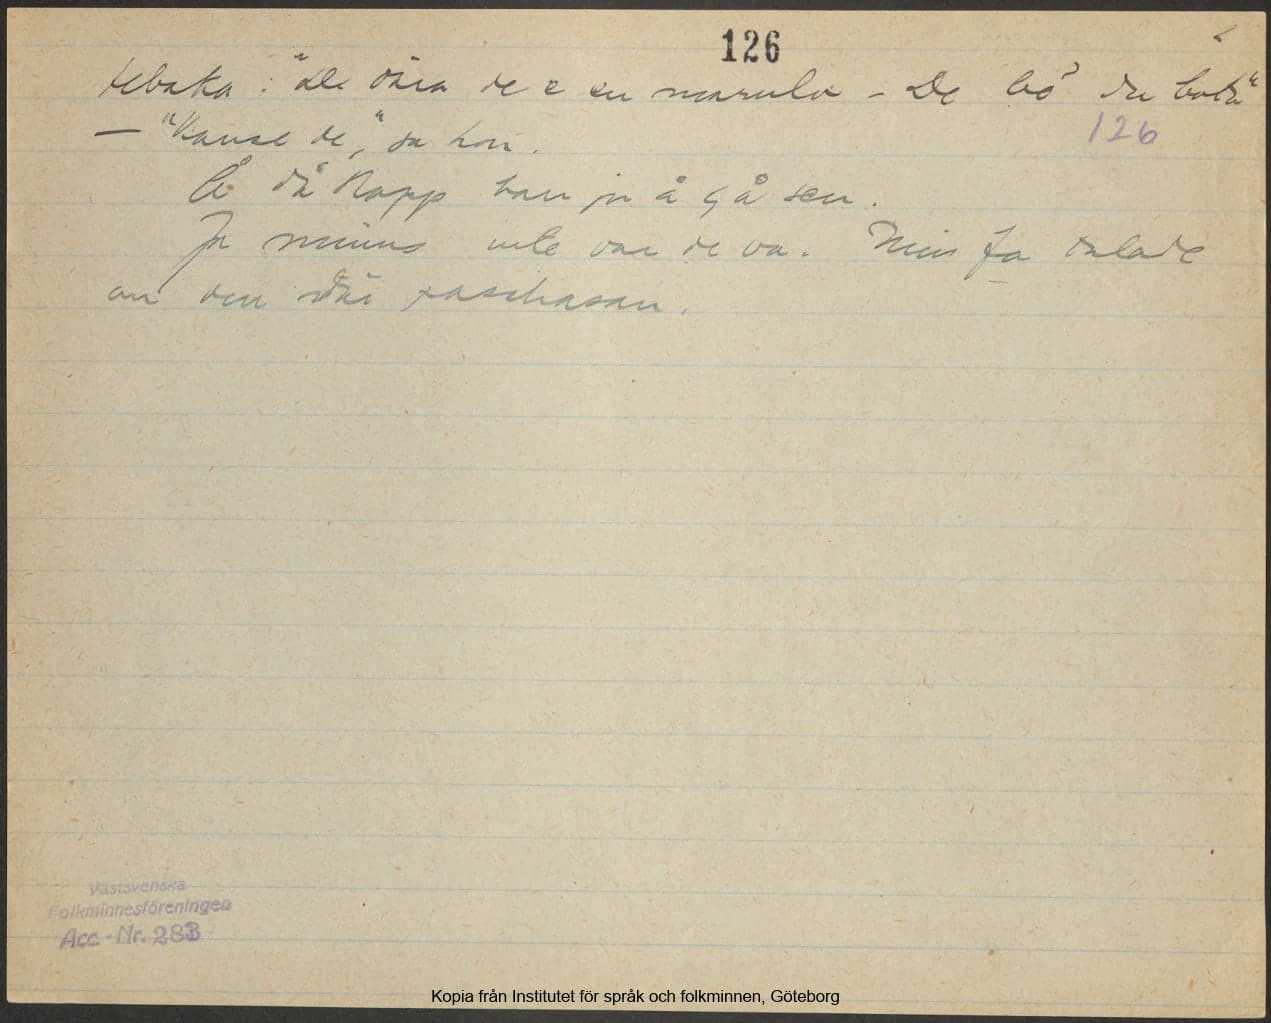 126
tebaka: "De dära de e en marulv - De bö du bota"
126
– "Kanse de," sa hon.
Å då Kapp han ju å gå sen.
Ja minns inte var de va. Min fa talade
om den där
Västsvenska
Folkminnesföreningen
Acc.-Nr. 283
Kopia från Institutet för språk och folkminnen, Göteborg